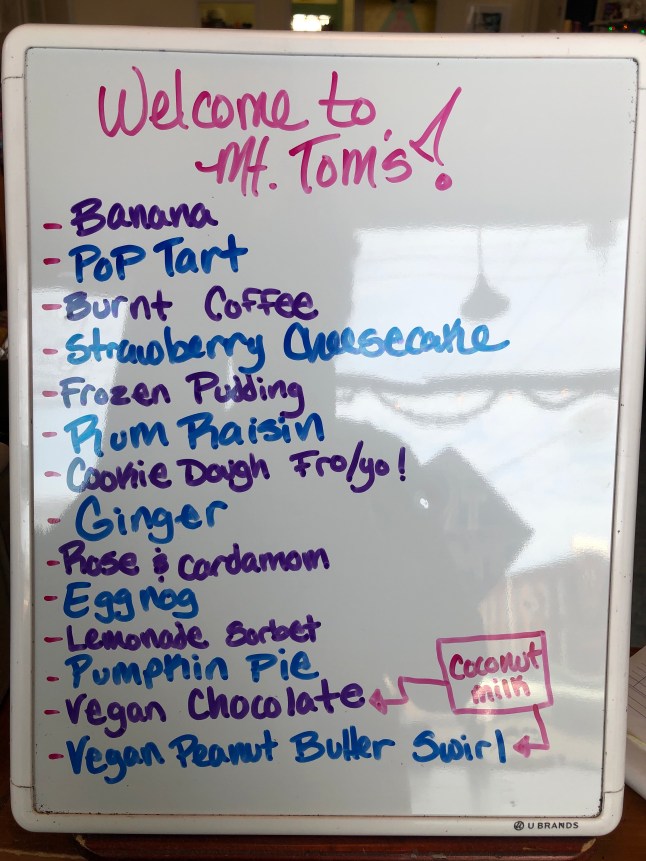 Welcome to
Mt. Tom's!
- Banana
- Pop Tart
- Burnt Coffee
- Strawberry Cheesecake
- Frozen Pudding
- Rum Raisin
- Cookie Dough Fro/yo!
- Ginger
- Rose & Cardamom
- Eggnog
- Lemonade Sorbet
- Pumpkin Pie
- Vegan Chocolate
Coconut
milk
- Vegan Peanut Butter Swirl
U BRANDS